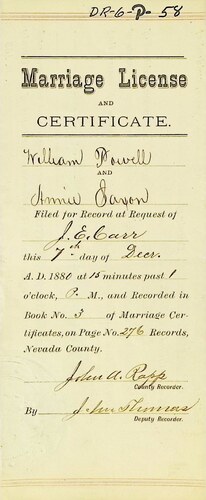 DR-6-P-58
Marriage License
AND
CERTIFICATE.
William Powell
AND
Annie Saxon
Filed for Record at Request of
J. E. Carr
this 7th day of Decr.
A. D. 1880 at 15 minutes past 1
o'clock, P. M., and Recorded in
Book No. 3 of Marriage Cer-
tificates, on Page No. 276 Records,
Nevada County.
John A. Rapp
County Recorder.
By John Thomas
Deputy Recorder.